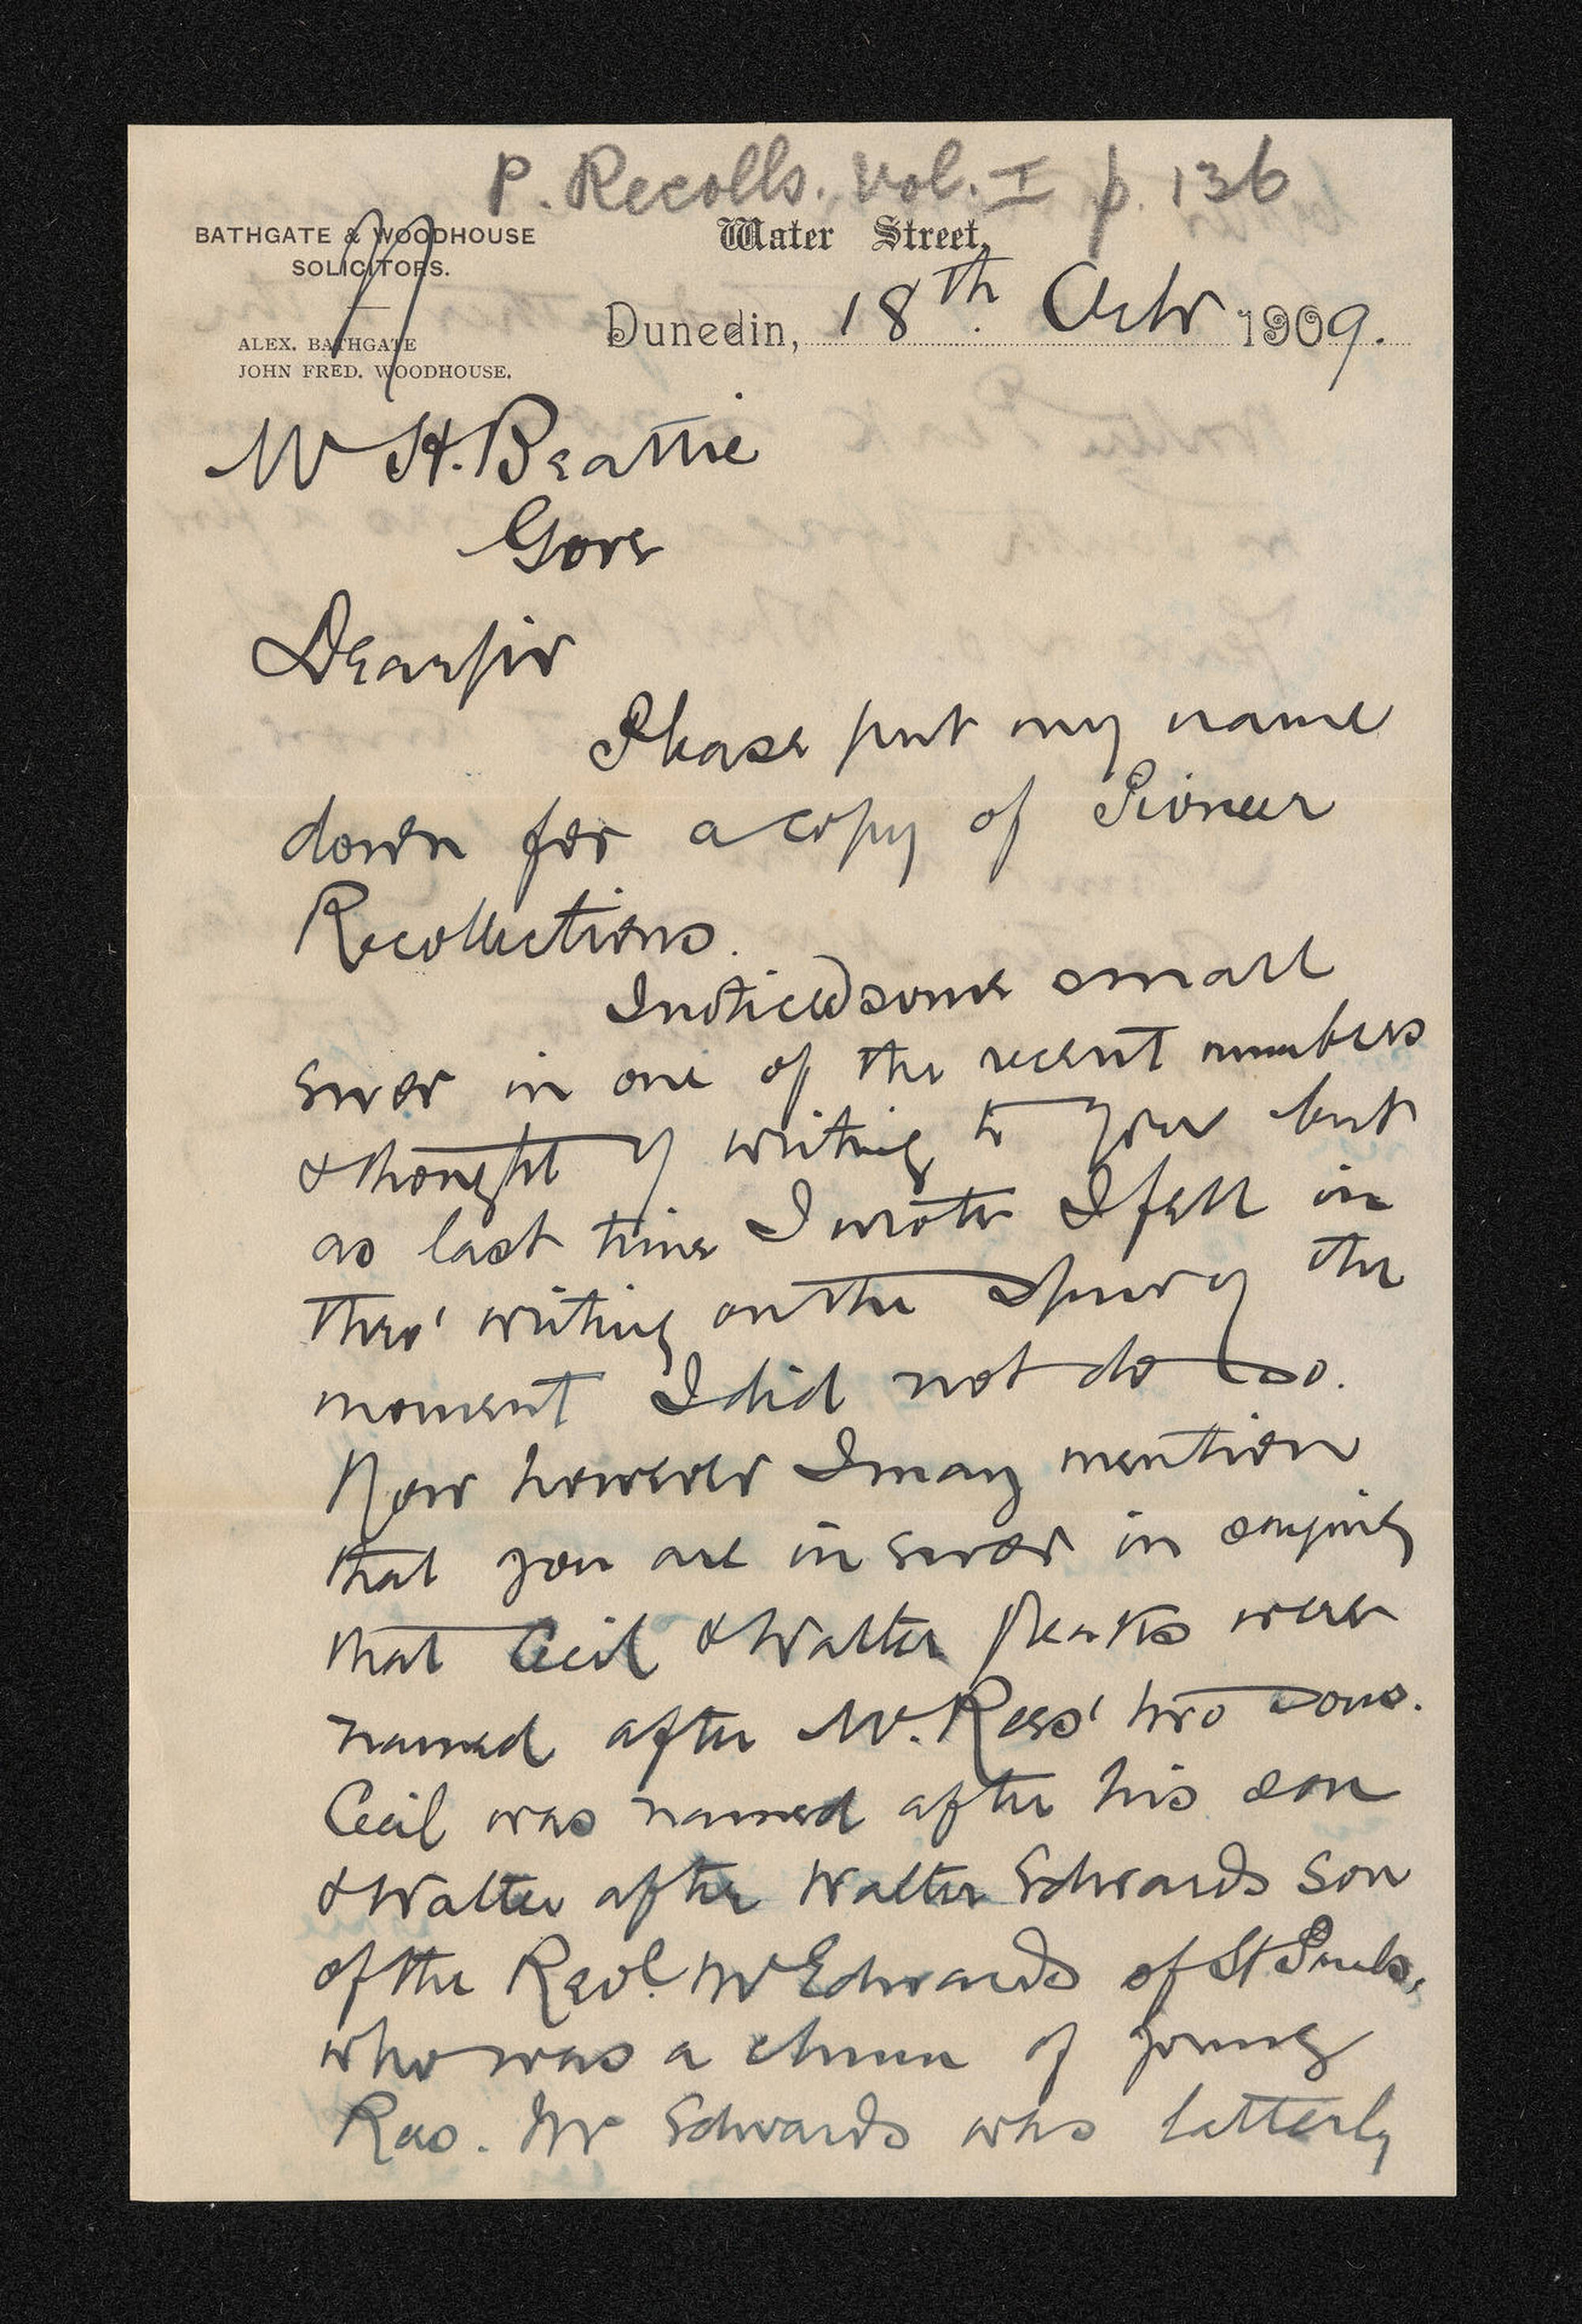 P. Recolls. Vol. I p. 136
BATHGATE & WOODHOUSE
SOLICITORS.
Water Street,
Dunedin, 18th Octr 1909.
ALEX. BATHGATE
JOHN FRED. WOODHOUSE.
Mr H. Beattie
Gore
Dear Sir
Please put my name
down for a copy of Pioneer
Recollections.
I noticed some small
error in one of the recent numbers
& thought of writing to you but
as last time I wrote I fell in
thro' writing on the spur of the
moment I did not do so.
Now however I may mention
that you are in error in saying
that Cecil & Walter Peaks were
named after Mr. Rees' two sons.
Cecil was named after his son
& Walter after Walter Edwards son
of the Revd. Mr Edwards of St Pauls,
who was a chum of young
Rees. Mr Edwards who latterly